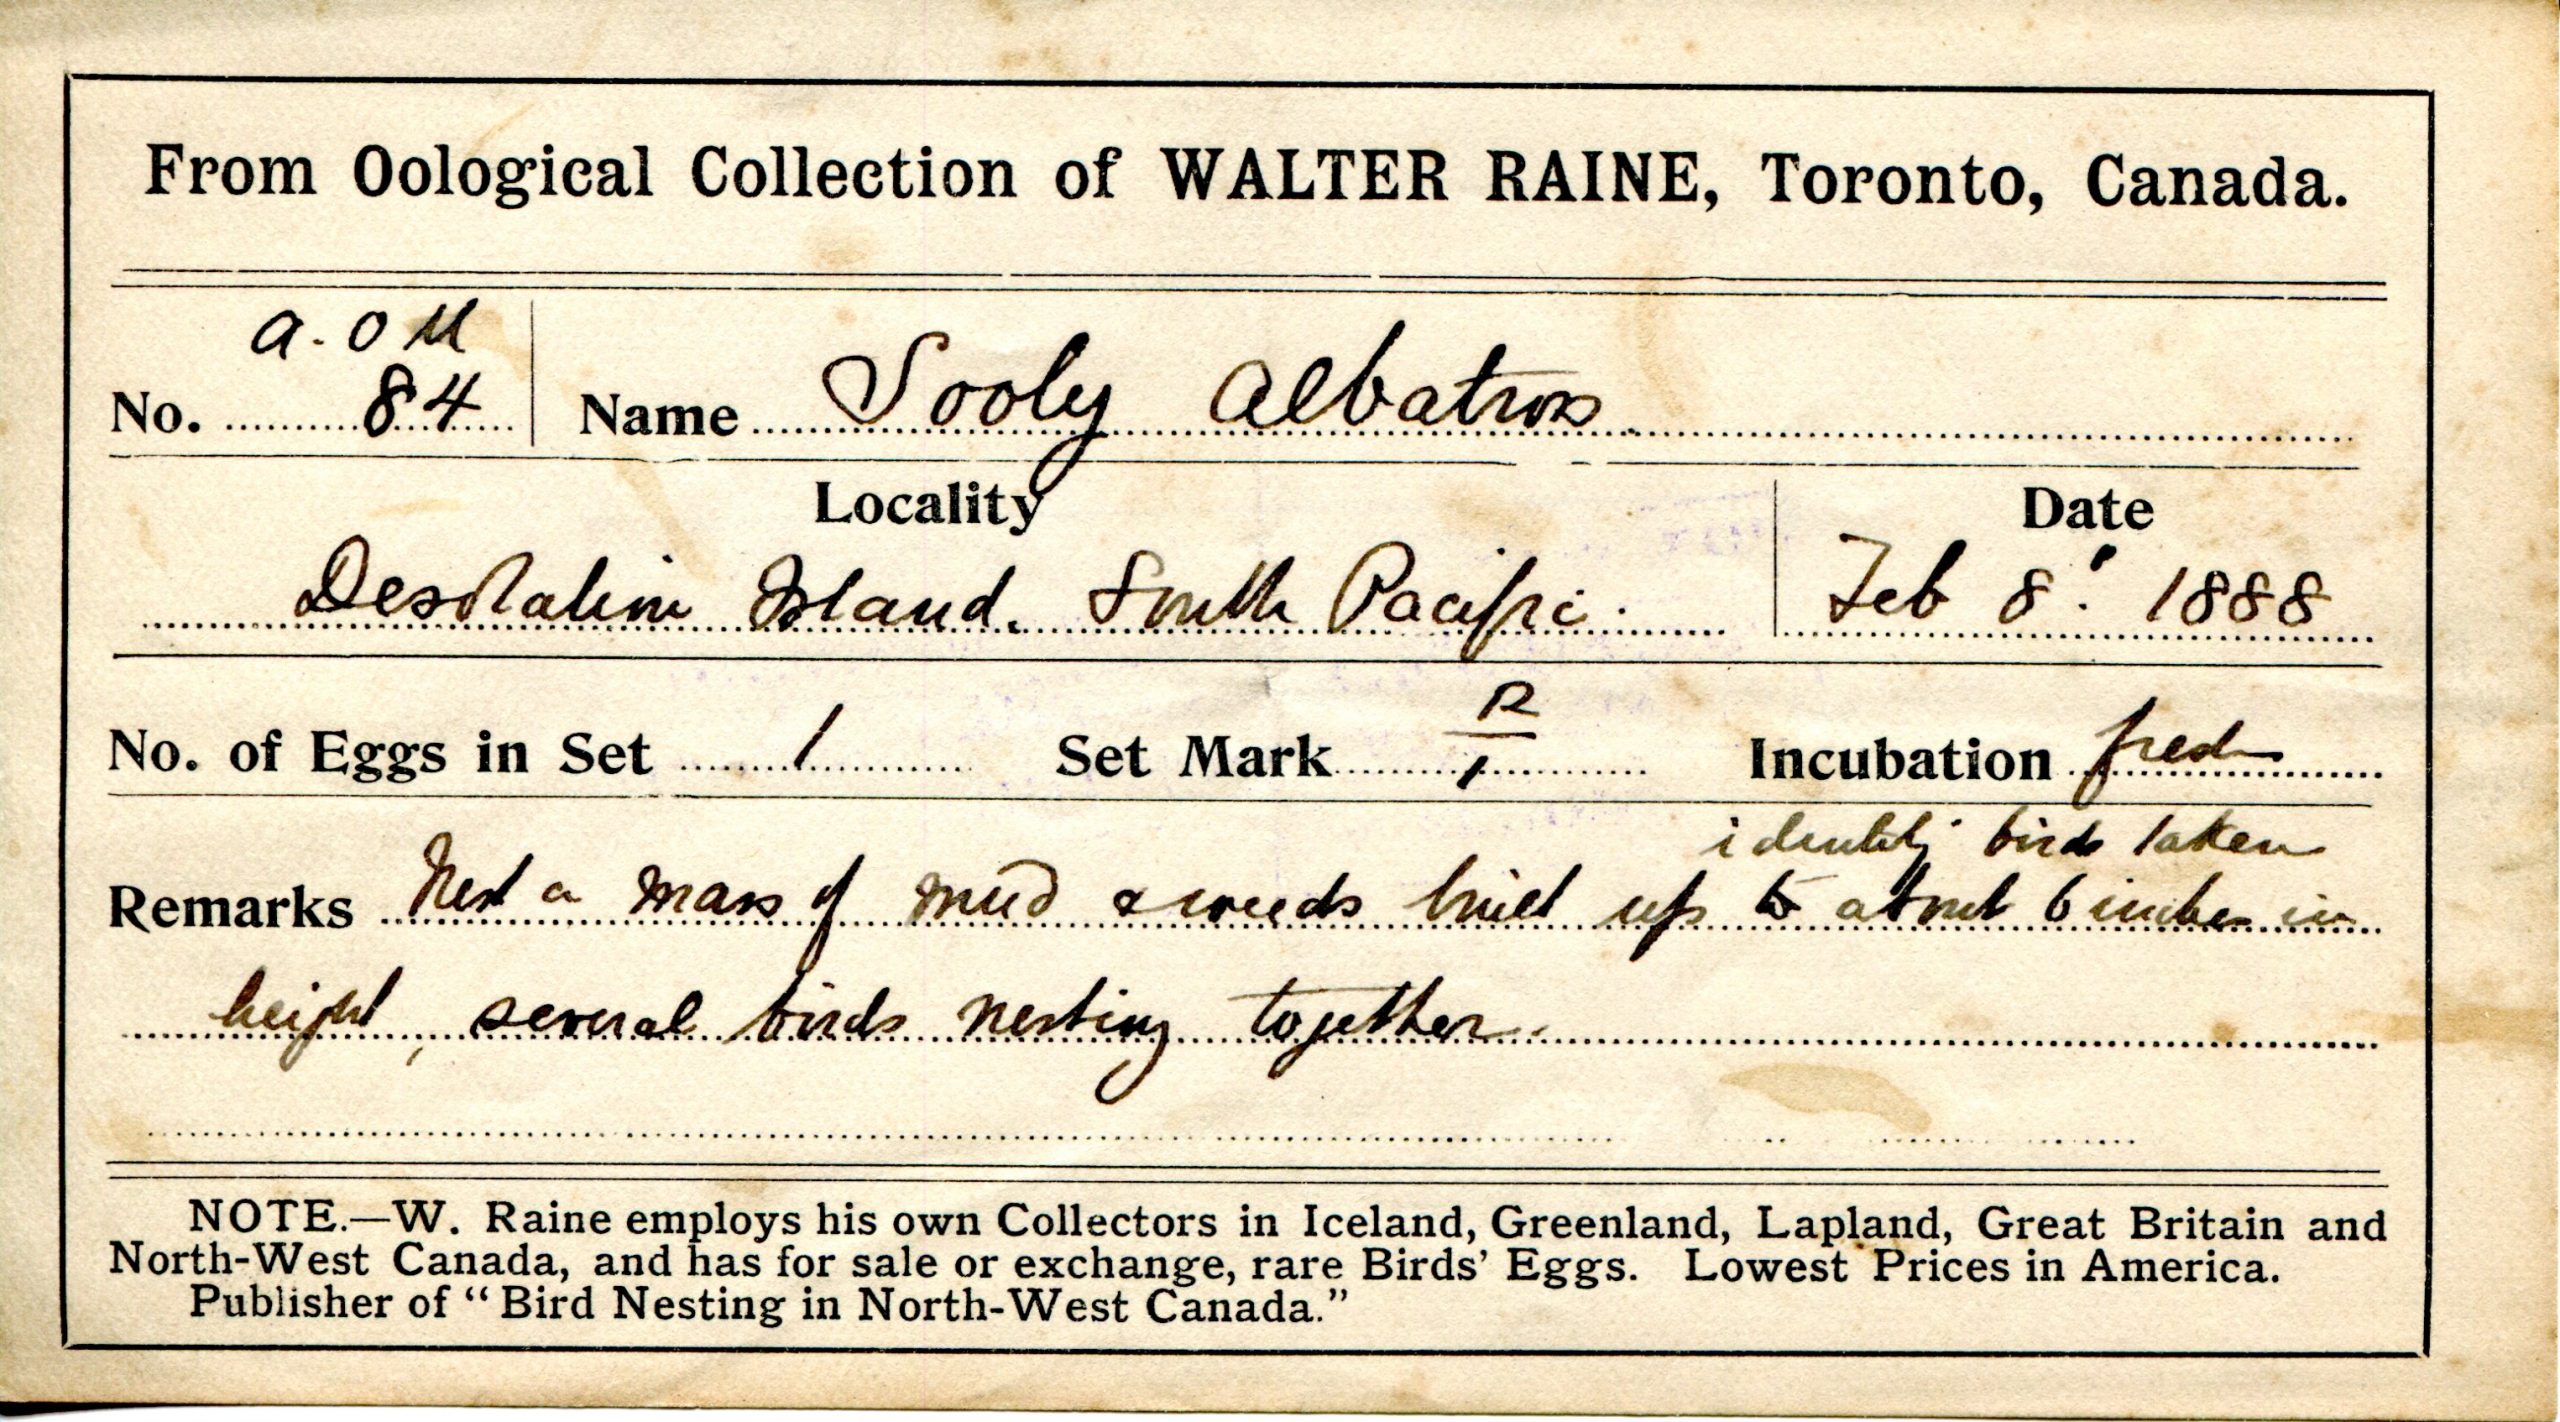 From Oological Collection of WALTER RAINE, Toronto, Canada.
A.O.U
No. 84 Name Sooty Albatross.
Locality Date
Desolation Island. South Pacific. Feb 8. 1888
No. of Eggs in Set 1 Set Mark R/1 Incubation fresh
identity birds taken
Remarks Nest a mass of mud & weeds built up to about 6 inches in
height, several birds nesting together.
NOTE.—W. Raine employs his own Collectors in Iceland, Greenland, Lapland, Great Britain and
North-West Canada, and has for sale or exchange, rare Birds' Eggs. Lowest Prices in America.
Publisher of "Bird Nesting in North-West Canada."